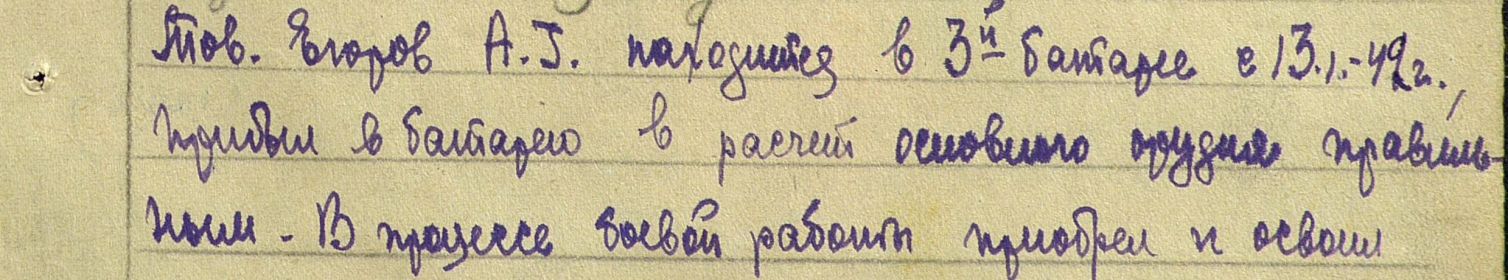 Тов. Егоров А.Г. находится в 3й батарее с 13.1.-42г.,
прибыл в батарею в расчет основного орудия правиль-
ным. В процессе боевой работы приобрел и освоил